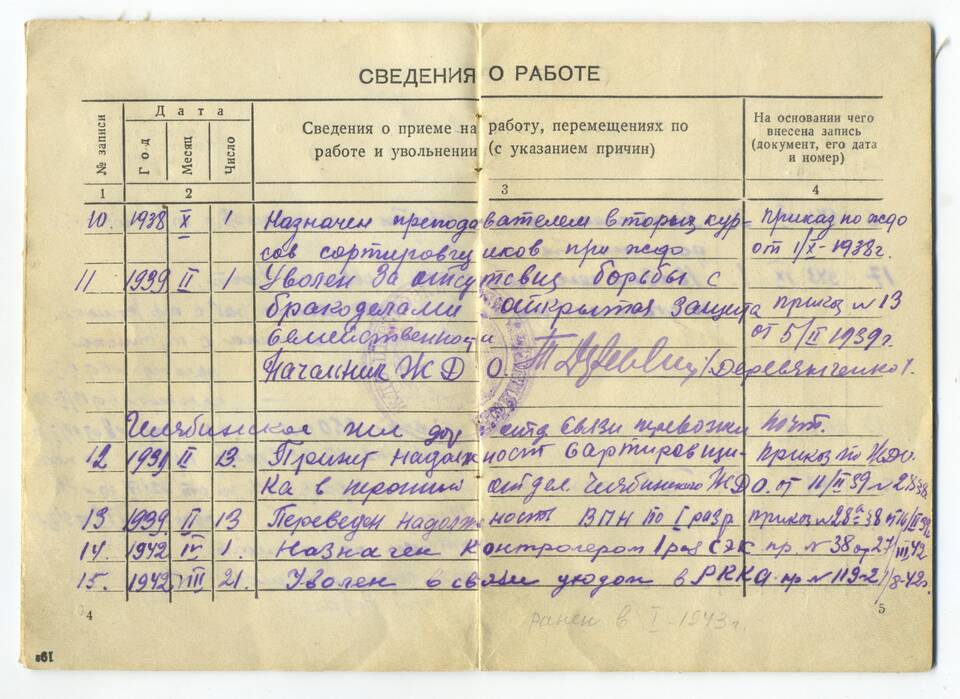 СВЕДЕНИЯ О РАБОТЕ
№ записи
Дата
Год
Месяц
Число
Сведения о приеме на работу, перемещениях по
работе и увольнении (с указанием причин)
На основании чего
внесена запись
(документ, его дата
и номер)
1 2 3 4
10. 1938 X 1 Назначен преподавателем вторых кур- приказ по ждо
сов сортировщиков при ждо от 1/X-1938г.
11 1939 II 1 Уволен за отсутствие борьбы с
бракоделами открытая защита приказ N 13
семейственности от 5/II 1939г.
Начальник ЖДО. /Деревянченко/.
Челябинское жел дор отд связи перевозки почт.
12 1939 II 13. Принят на должность сартировщи- приказ по ЖДО.
ка в отдел Челябинского ЖДО. от 11/II 39г N 28
13 1939. II 13 Переведен на должность ВПН по I разр приказ N 28а
14. 1942 IV 1. Назначен контролером 1 раз СЭК пр. N 38 от 27/III 42
15. 1942 VIII 21. Уволен в связи уходом в РККА пр N 119-2 /8-42г.
4
5
ранен в I-1943г.